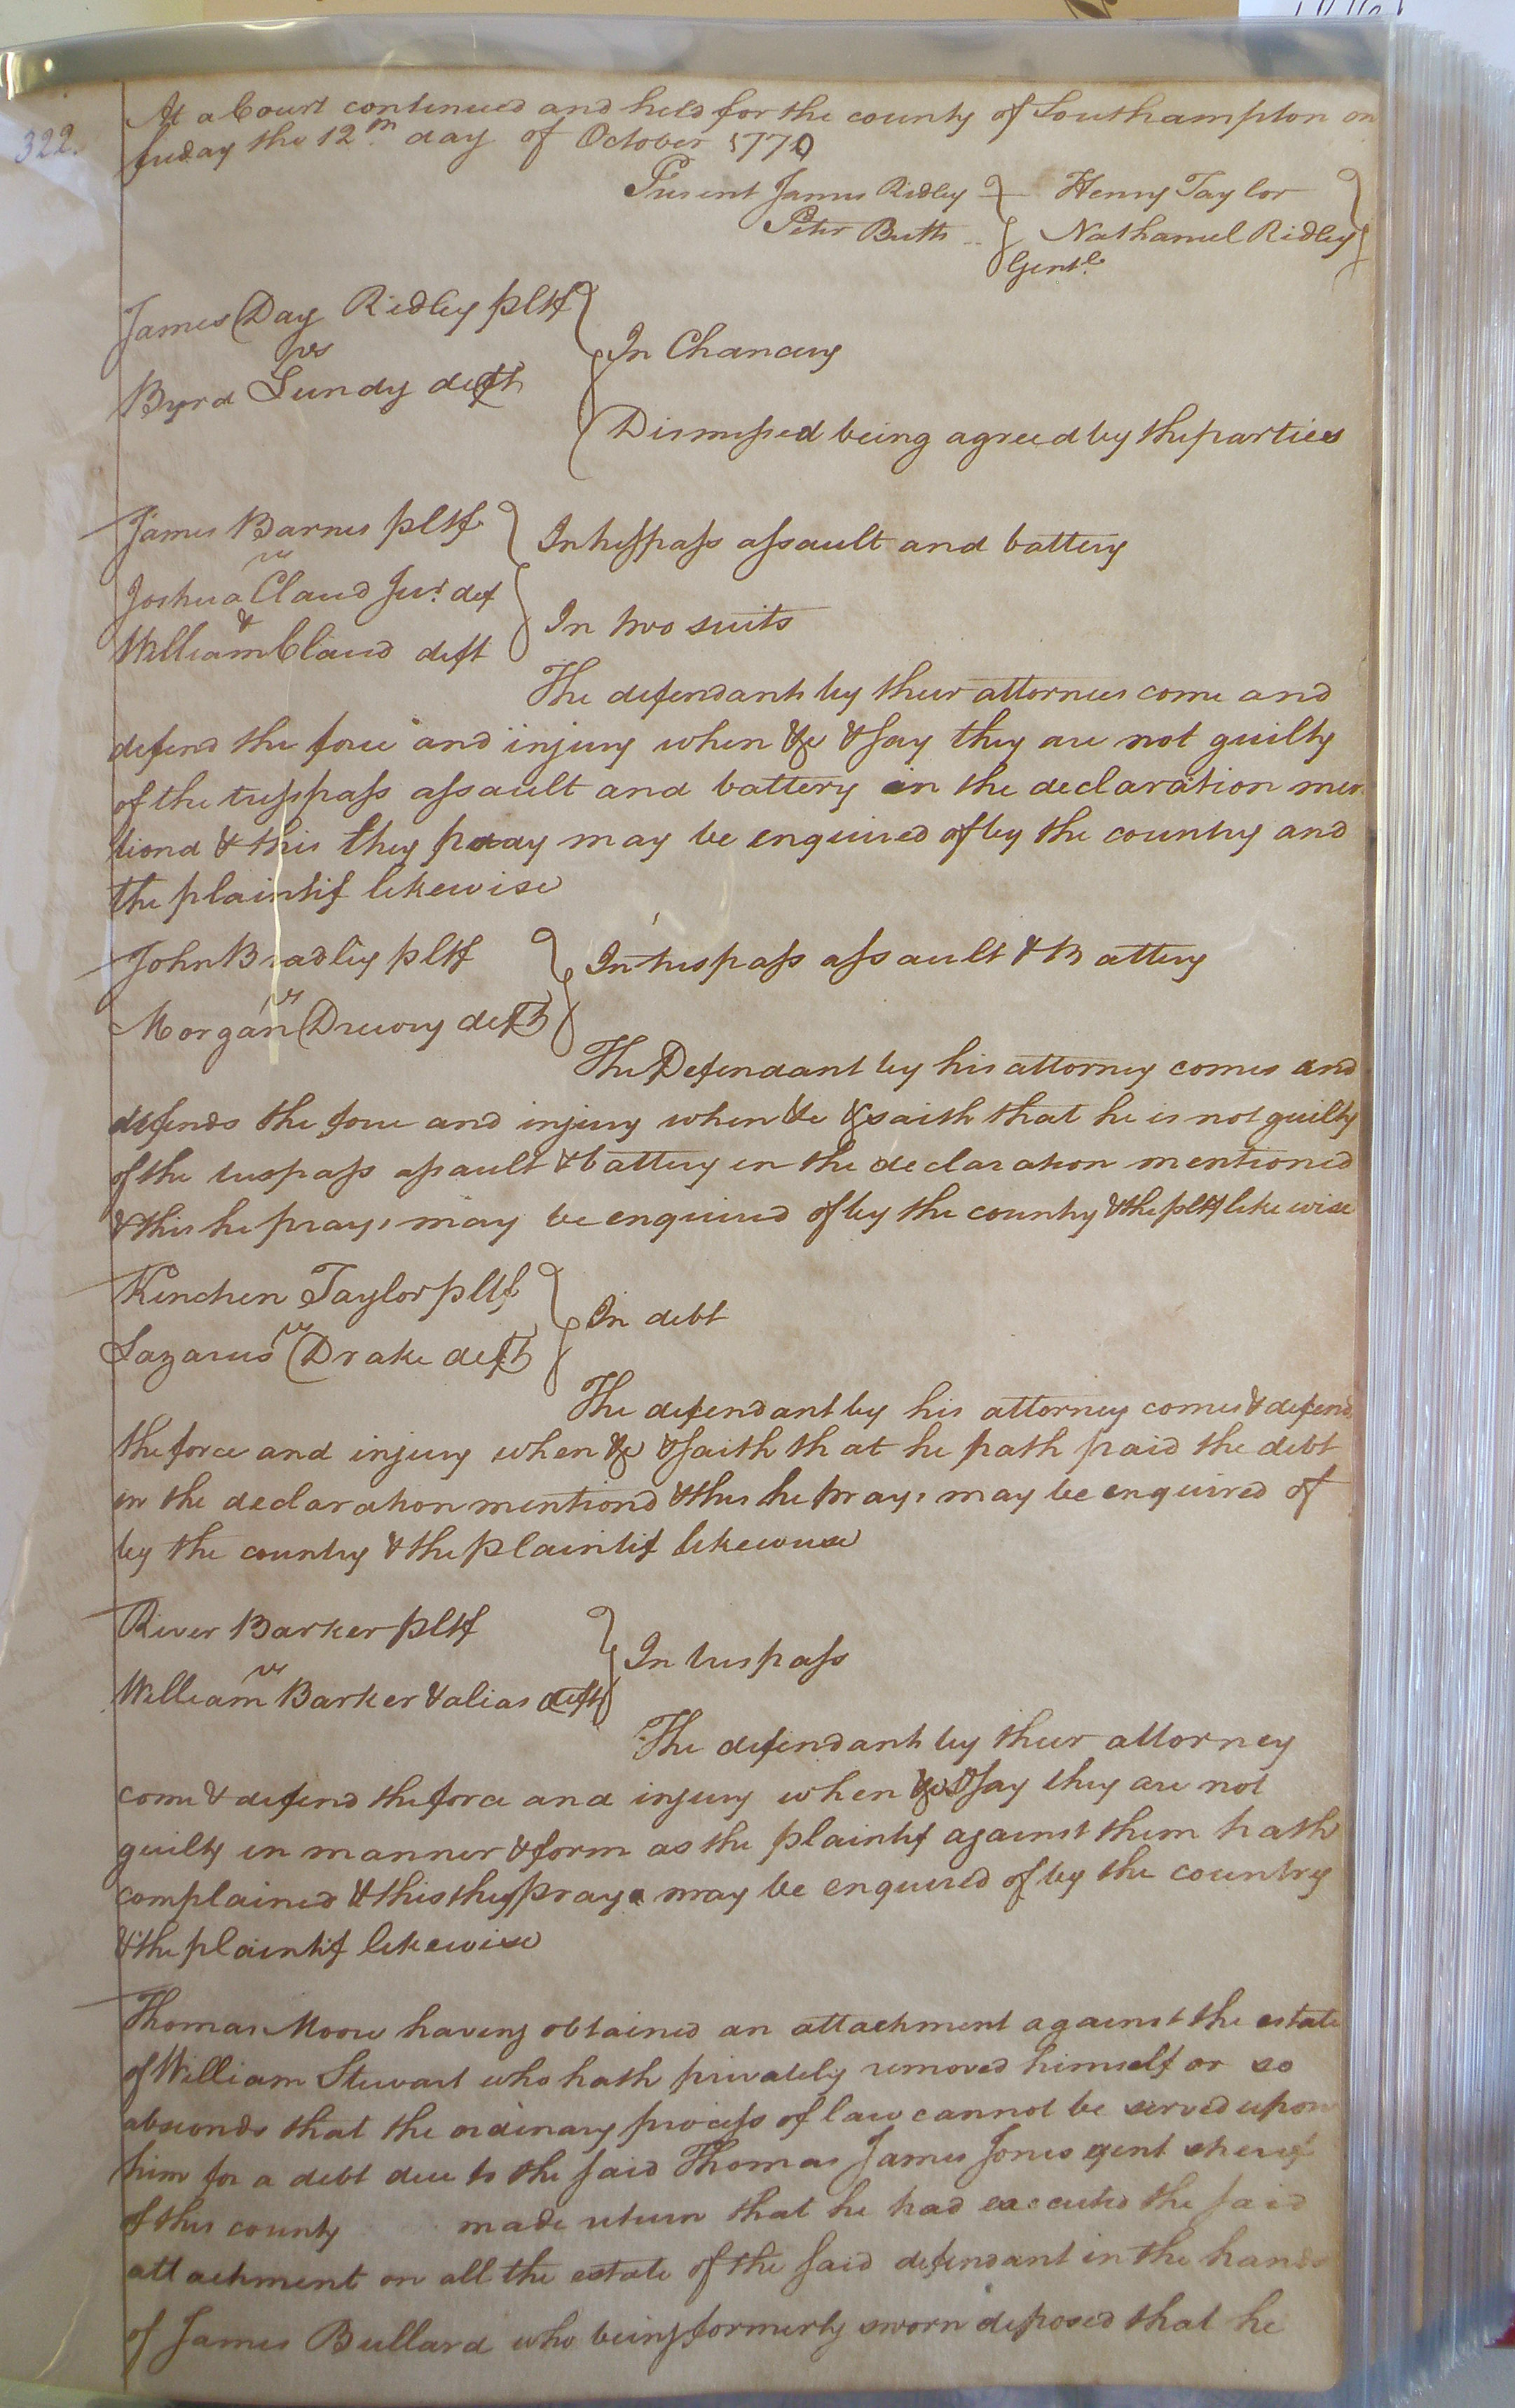 322.
At a Court continued and held for the county of Southampton on
friday the 12th. day of October 1770
Present James Ridley Henry Taylor
Peter Butts Nathaniel Ridley
Gentl.
James Day Ridley pltf
vs
In Chancery
Byrd Lundy deft
Dismissed being agreed by the parties
James Barnes pltf
In tresspass assault and battery
vs
Joshua Claud Junr. def
&
In two suits
William Claud deft
The defendants by their attornies come and
defend the force and injury when &c & say they are not guilty
of the tresspass assault and battery in the declaration men
tiond & this they pray may be enquired of by the country and
the plaintif likewise
John Bradley pltf
In trespass assault & Battery
vs
Morgan Drewry deft
The Defendant by his attorney comes and
defends the force and injury when &c & saith that he is not guilty
of the trespass assault & battery in the declaration mentioned
& this he prays may be enquired of by the country & the pltf likewise
Kinchen Taylor pltf
In debt
vs
Lazarus Drake deft
The defendant by his attorney comes & defends
the force and injury when &c & saith that he hath paid the debt
in the declaration mentiond & this he prays may be enquired of
by the country & the plaintif likewise
River Barker pltf
In trespass
vs
William Barker & alias defts
The defendants by their attorney
come & defend the force and injury when &c & say they are not
guilty in manner & form as the plaintif against them hath
complained & this they pray may be enquired of by the country
& the plaintif likewise
Thomas Moore having obtained an attachment against the estate
of William Stewart who hath privately removed himself or so
absconds that the ordinary process of law cannot be served upon
him for a debt due to the said Thomas James Jones gent sherif
of this county made return that he had executed the said
attachment on all the estate of the said defendant in the hands
of James Bullard who being formerly sworn deposed that he